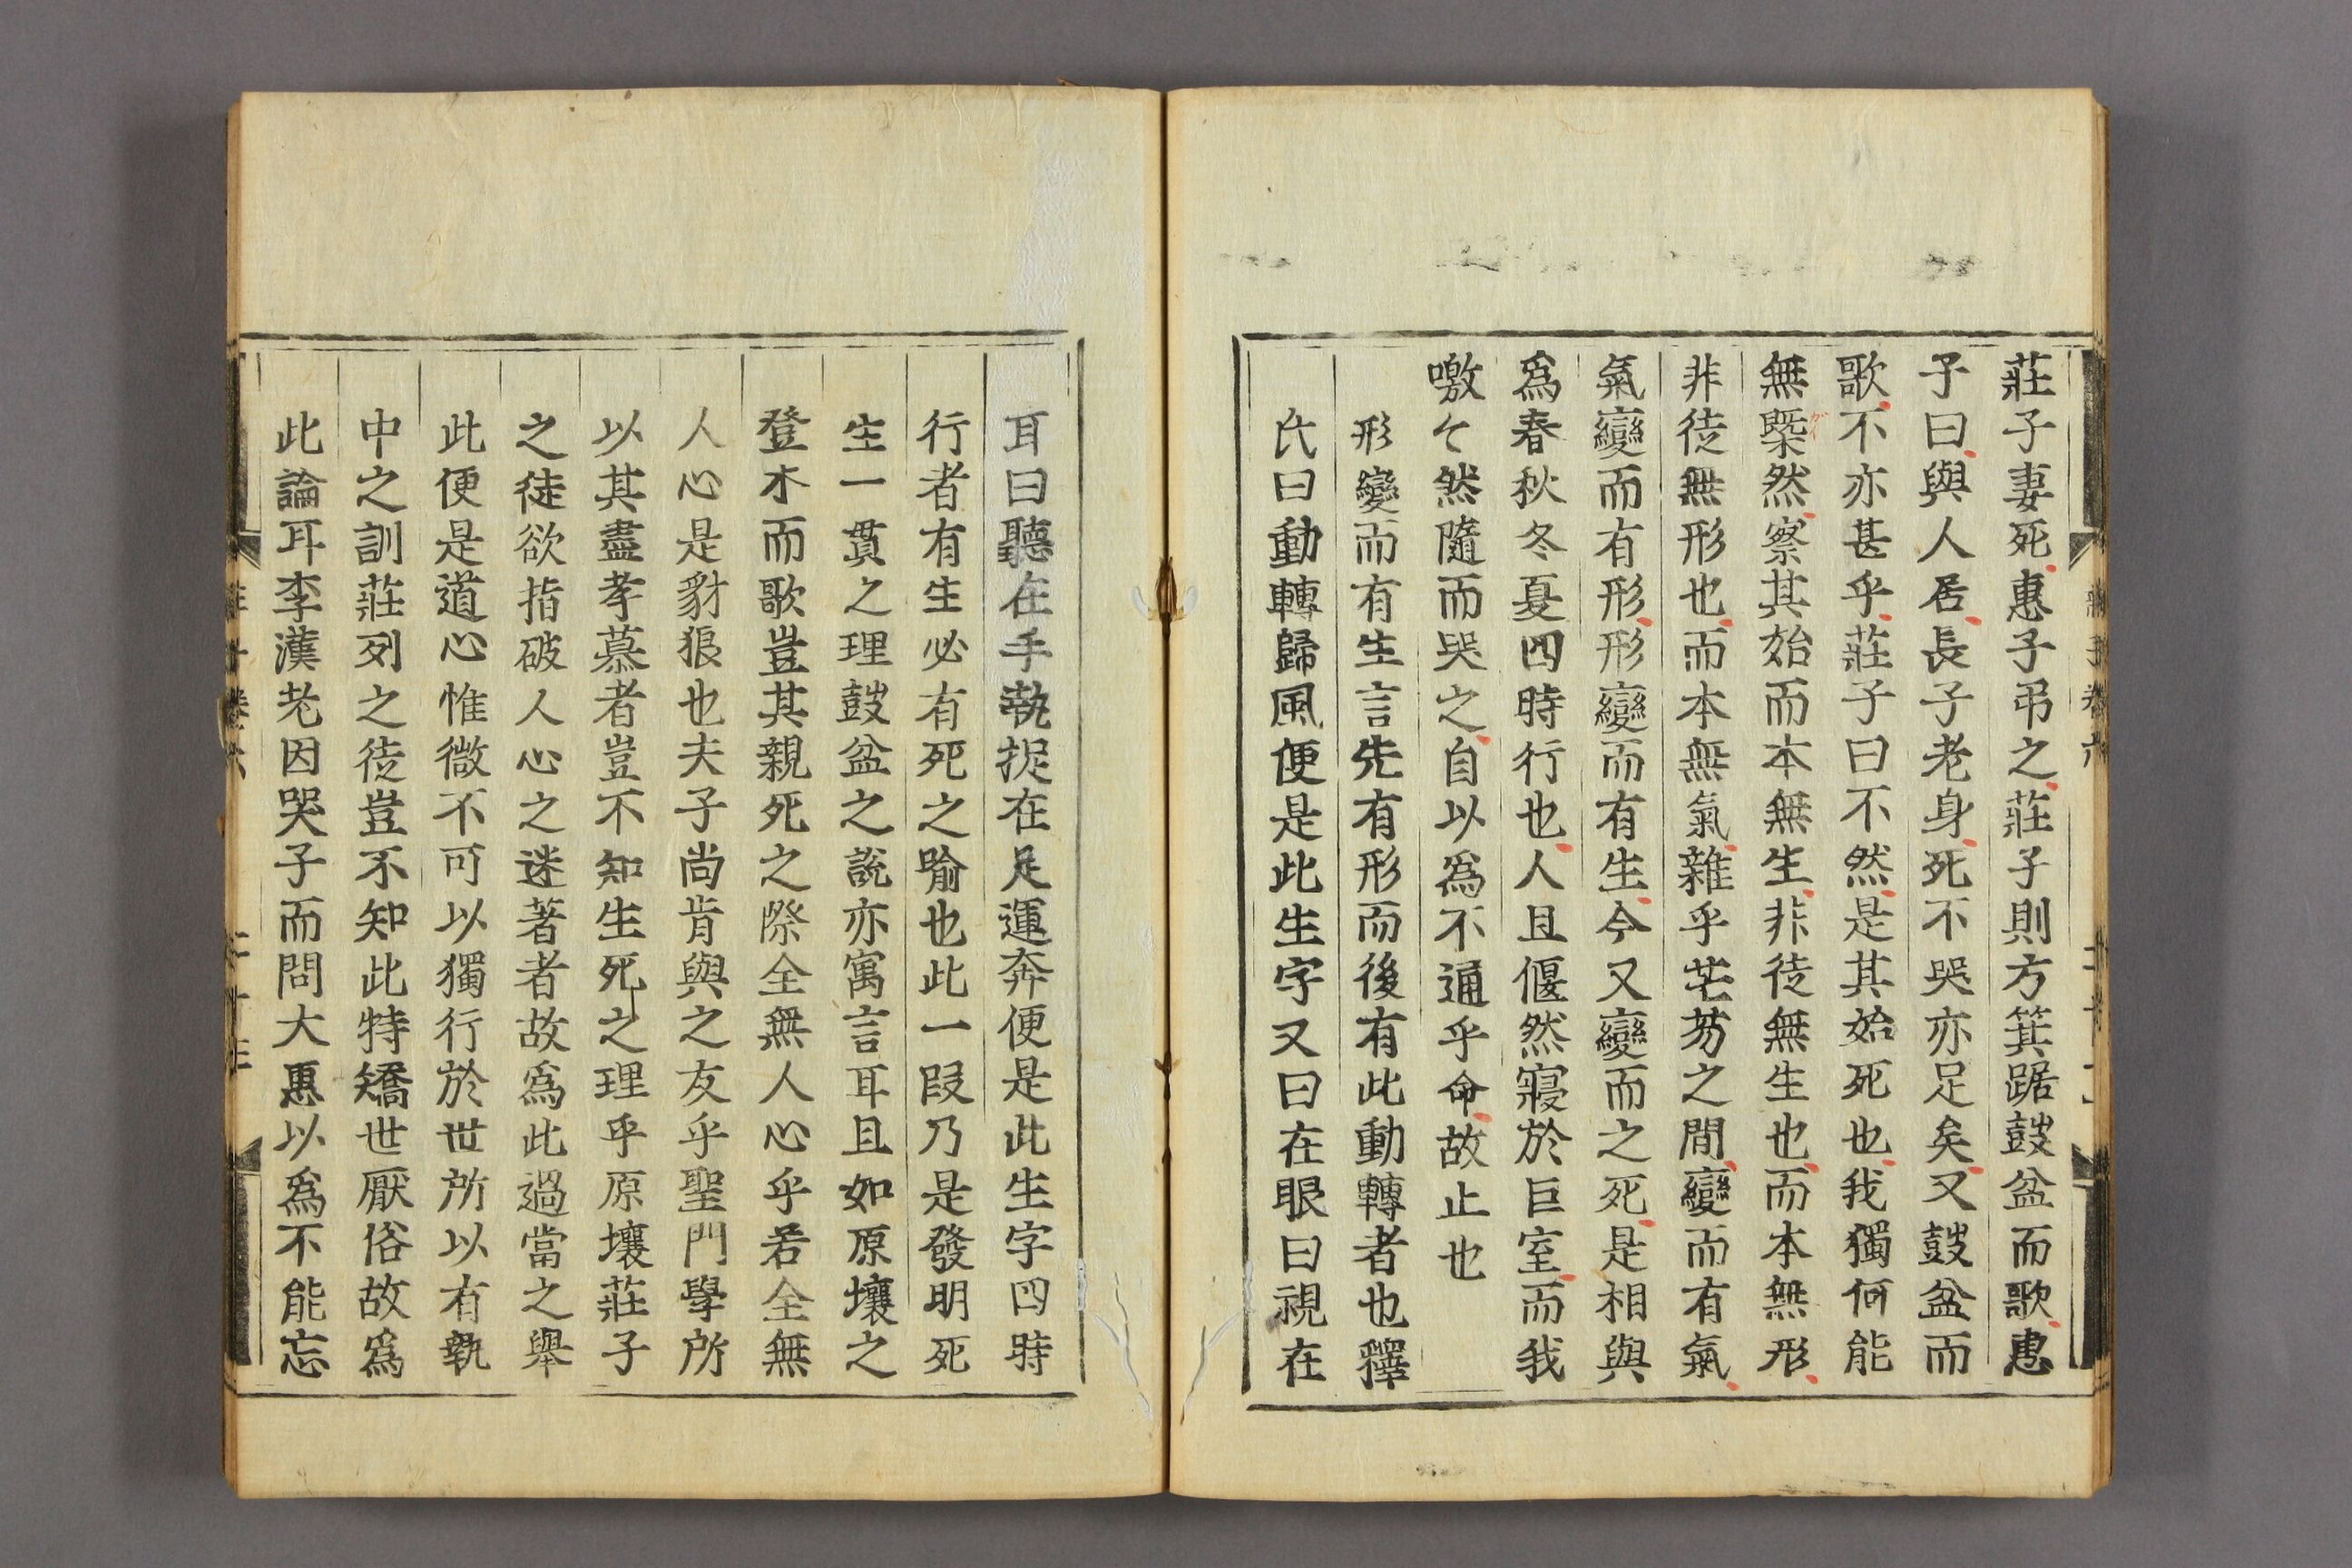 莊子妻死惠子弔之莊子則方箕踞鼓盆而歌惠
子曰與人居長子老身死不哭亦足矣又鼓盆而
歌不亦甚乎莊子曰不然是其始死也我獨何能
無槩然察其始而本無生非徒無生也而本無形
非徒無形也而本無氣雜乎芒芴之間變而有氣
氣變而有形形變而有生今又變而之死是相與
爲春秋冬夏四時行也人且偃然寢於巨室而我
噭々然隨而哭之自以爲不通乎命故止也
形變而有生言先有形而後有此動轉者也釋
氏曰動轉歸風便是此生字又曰在眼曰視在
耳曰聽在手執捉在足運奔便是此生字四時
行者有生必有死之喻也此一段乃是發明死
生一貫之理鼓盆之說亦寓言耳且如原壤之
登木而歌豈其親死之際全無人心乎若全無
人心是豺狼也夫子尚肯與之友乎聖門學所
以其盡孝慕者豈不知生死之理乎原壤莊子
之徒欲指破人心之迷著者故爲此過當之舉
此便是道心惟微不可以獨行於世所以有執
中之訓莊列之徒豈不知此特矯世厭俗故爲
此論耳李漢老因哭子而問大惠以爲不能忘
莊子卷六